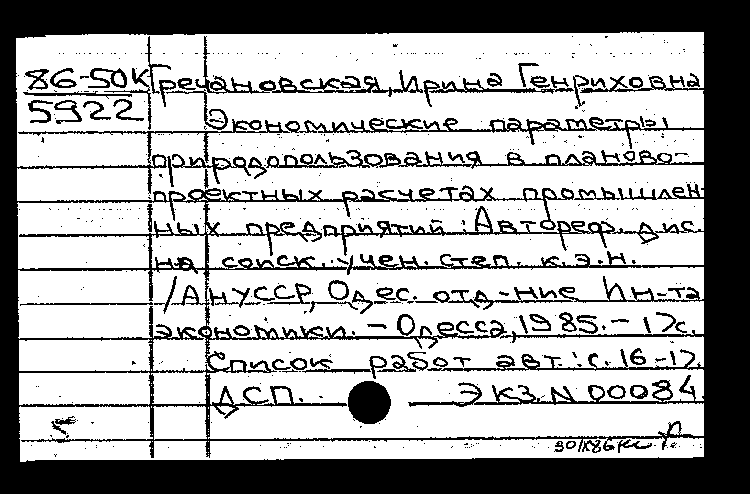 86-50к Гречановская, Ирина Генриховна
5922
Экономические параметры
природопользования в планово-
проектных расчетах промышлен-
ных предприятий : Автореф. дис.
на соиск. учен. степ. к.э.н.
/АН УССР, Одес. отд-ние Ин-та
экономики. - Одесса, 1985. - 17с.
Список работ авт.: с. 16-17.
ДСП. Экз. N 00084.
5